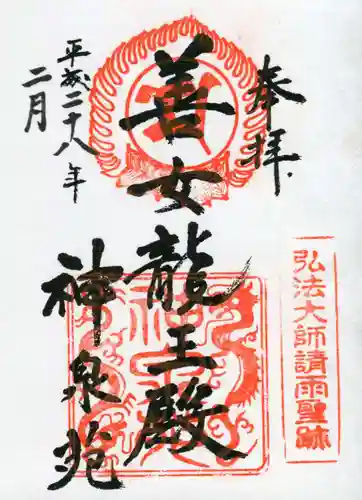 奉拝
善女龍王殿
平成二十八年
二月
神泉苑
弘法大師請雨聖跡